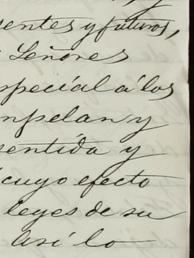 sentes y futuros,
Señores
special á los
mpelan y
sentida y
cuyo efecto
leyes de su
así lo